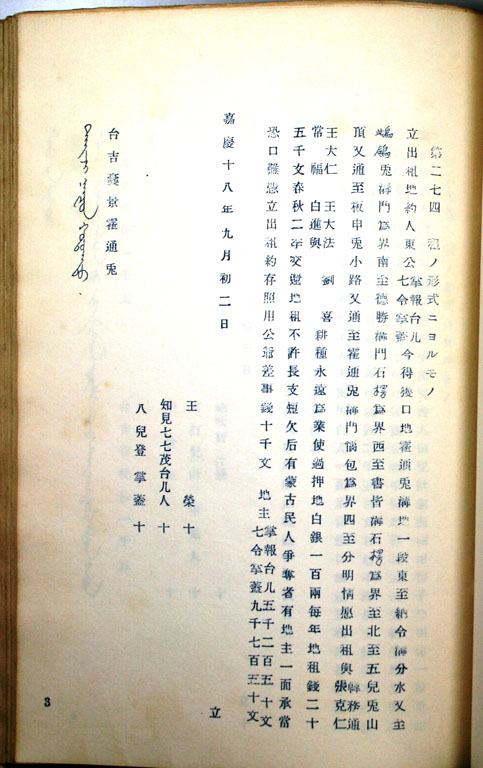 第二七四 租ノ形式ニヨルモノ
立出租地約人東公 掌報台儿 七令掌盖 今得獲口地霍通兎溝地一段東至納令溝分水又主
兎溝門爲界南至德勝溝門石爲界西至書皆溝石爲界至北至五兒兎山
頂又通至板申兎小路又通至霍通兎溝門惱包爲界四至分明情愿出租與 韓務通 張克仁
王大仁 王大法 劉 喜 耕種永遠爲業使過押地白銀一百兩每年地租錢二十
常 福 白進與
五千文春秋二季交地租不許長支短欠后有蒙古民人爭奪者有地主一面承當
恐口難憑立出租約存照用公爺差事錢十千文 地主 掌報台儿五千二百五十文
七令掌盖九千七百五十文
立
嘉慶十八年九月初二日
王 榮 十
知見七七茂台儿人 十
八兒登掌盖 十
台吉霍通兎
3